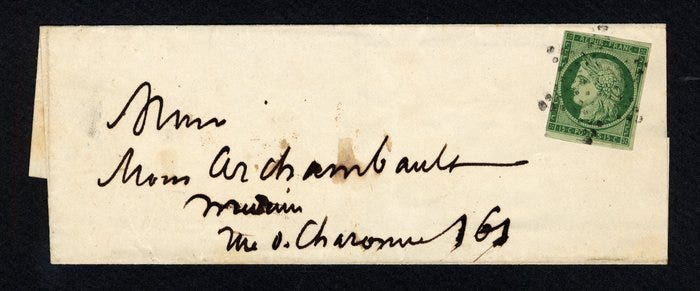 REPUB. FRANC.
15 C. POSTES 15 C.
Mons
Mons Archambault
médecin
rue d. Charonne 161